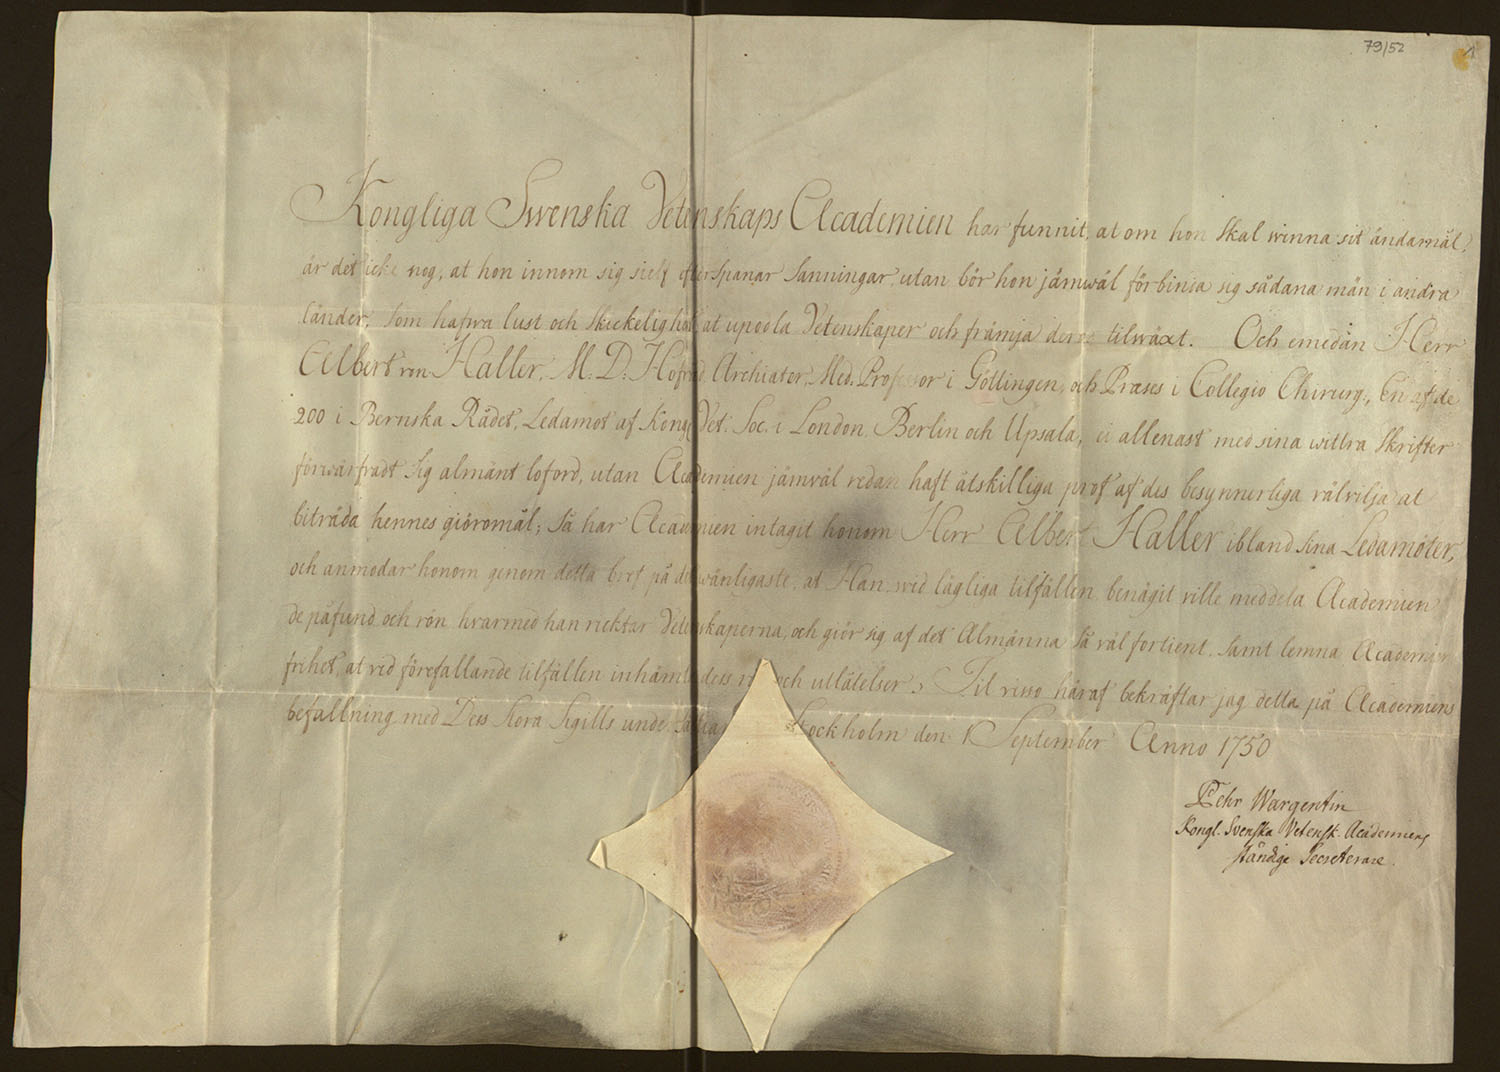 79/52
1
Kongliga Swenska Vetenskaps Academien har funnit, at om hon skal winna sit ändamål,
är det icke nog, at hon innom sig sielf efterspanar Sanningar, utan bör hon jämwäl förbinda sig sådana män i andra
länder, som hafwa lust och skickelighet at upodla Vetenskaper och främja deras tilwäxt. Och emedan Herr
Albert von Haller, M. D. Hofråd, Archiater, Med. Professor i Göttingen, och Præses i Collegio Chirurg., En af de
200 i Bernska Rådet, Ledamot af Kongl. Vet. Soc. i London, Berlin och Upsala, ei allenast med sina wittra Skrifter
förwärfradt sig almänt loford, utan Academien jämväl redan haft åtskilliga prof af des besynnerliga välvilja at
biträda hennes giöromål; Så har Academien intagit honom Herr Albert Haller ibland sina Ledamöter,
och anmodar honom genom detta bref på det wänligaste, at Han, wid lägliga tilfällen benägit ville meddela Academien
de påfund och rön hvarmed han riektar Vetenskaperna, och giör sig af det Almänna så väl fortient, samt lemna Academien
frihet, at ved förefallande tilfällen inhämta dess och utlåtelser. Til visso häraf bekräftar jag detta på Academiens
befallning med Dess Stora Sigills Stockholm den 1 September Anno 1750
Pehr Wargentin
Kongl. Svenska Vetensk. Academiens
ständige Secreterare.